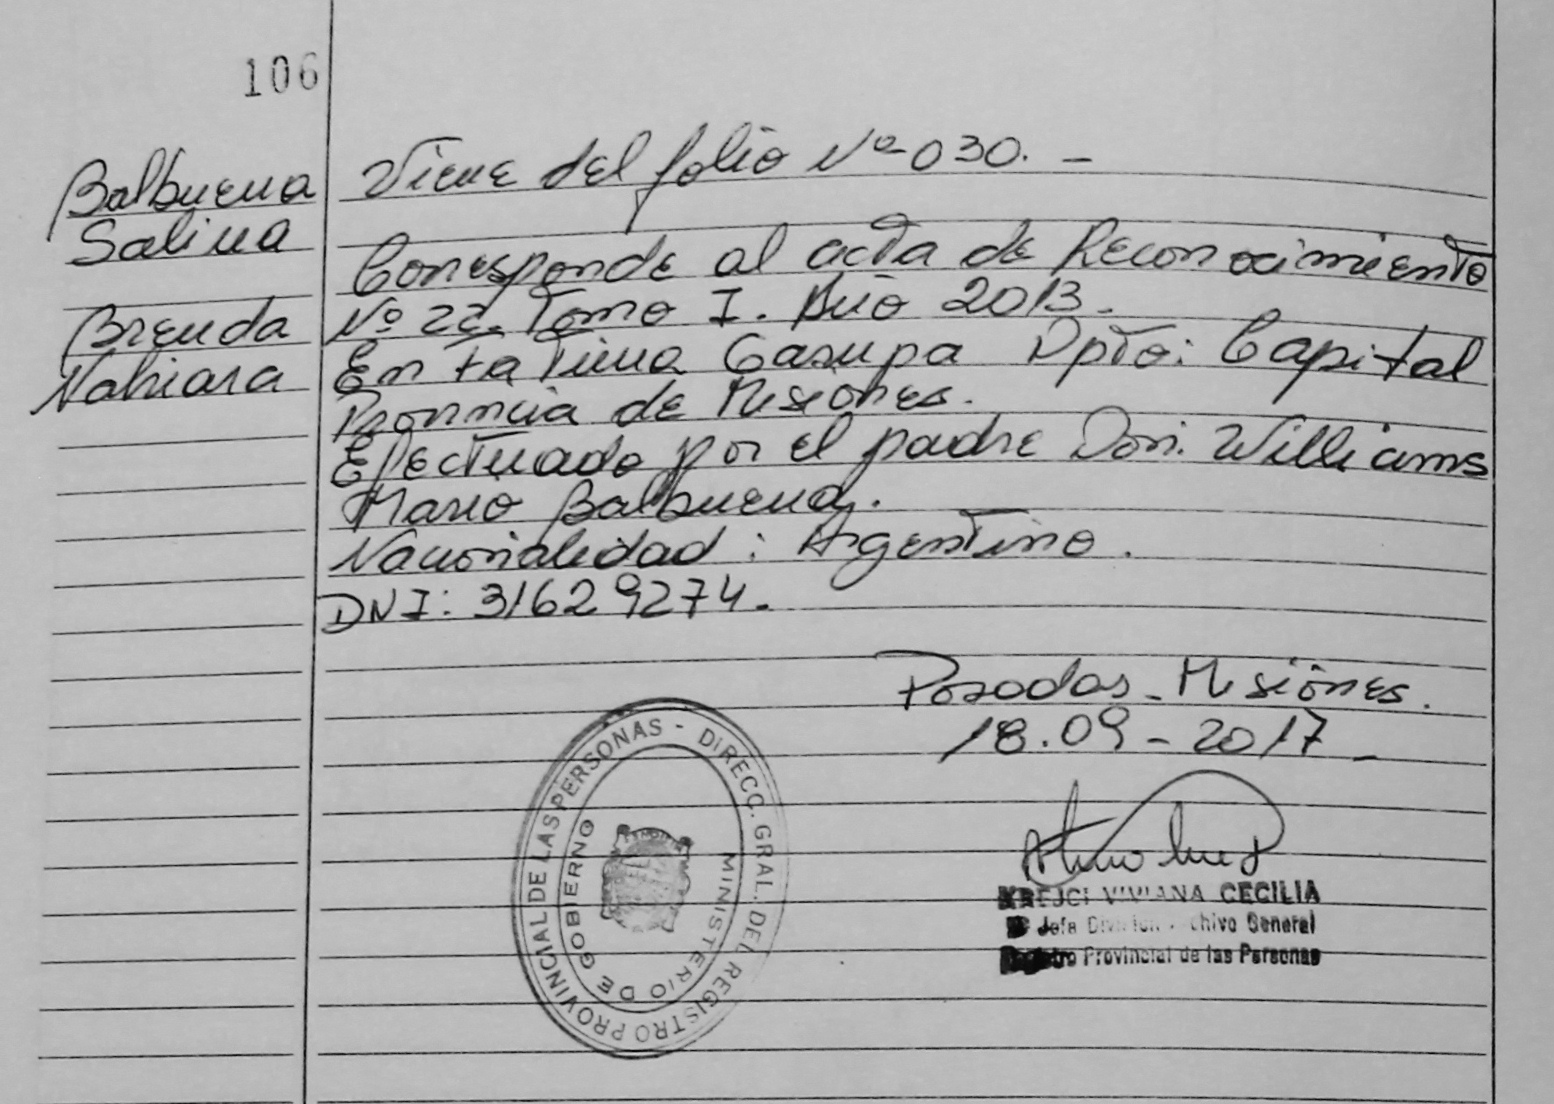 106
Balbuena
Salina
Brenda
Nahiara
Viene del folio Nº 030. -
Corresponde al acta de Reconocimiento
Nº 22 Tomo I. Año 2013.
En Garupa Dpto: Capital
Provincia de Misiones.
Efectuado por el padre Don. Williams
Mario Balbuena.
Nacionalidad: Argentino.
DNI: 31629274.
Posadas - Misiones.
18.09 - 2017
REGISTRO PROVINCIAL DE LAS PERSONAS - DIRECC. GRAL. DEL
MINISTERIO DE GOBIERNO
KREJCI VIVIANA CECILIA
Jefa División Archivo General
Registro Provincial de las Personas